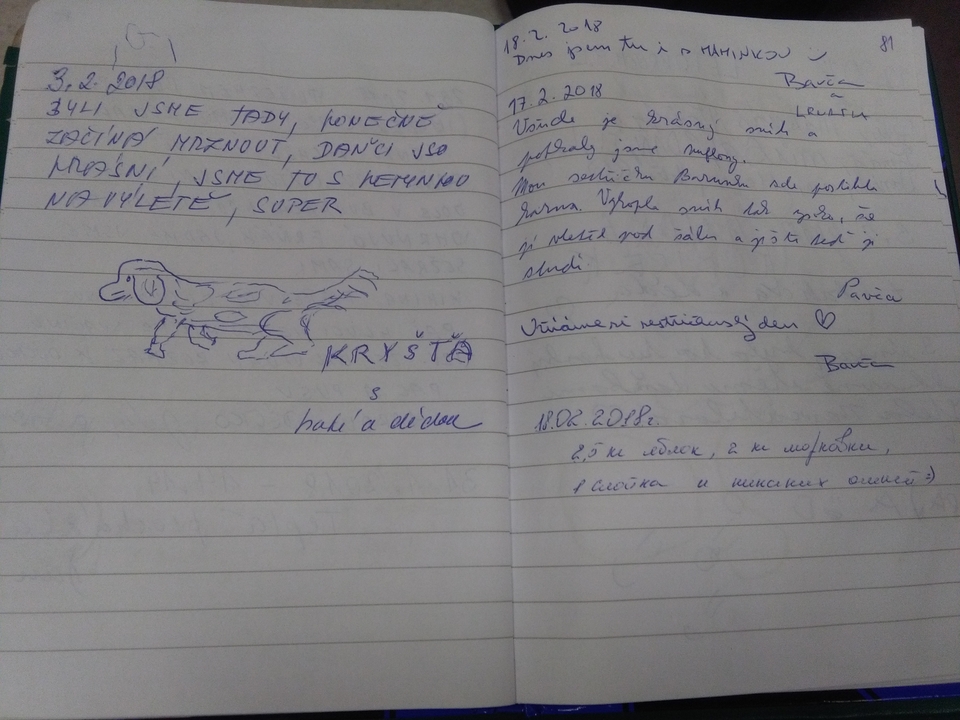 3.2.2018
BYLI JSME TADY, KONEČNĚ
ZAČÍNÁ MRZNOUT, DANČI JSO
KRÁSNÍ, JSME TO S
NA VÝLETĚ, SUPER
KRYŠŤA
s
babí a dědou
81
18.2.2018
Dnes jsem tu i s MAMINKOU
Barča
a
17.2.2018
Všude je krásný sníh a
potkaly jsme muflony.
Mou sestřičku Barunku zde postihla
karma. Vykopla sníh tak vysoko, že
jí vletěl pod šálu a ještě teď jí
studí.
Pavča
Užíváme si sestřičkovský den ♡
Barča
18.02.2018г.
2,5 кг яблок, 2 кг морковки,
1 слойка и никаких оленей =)